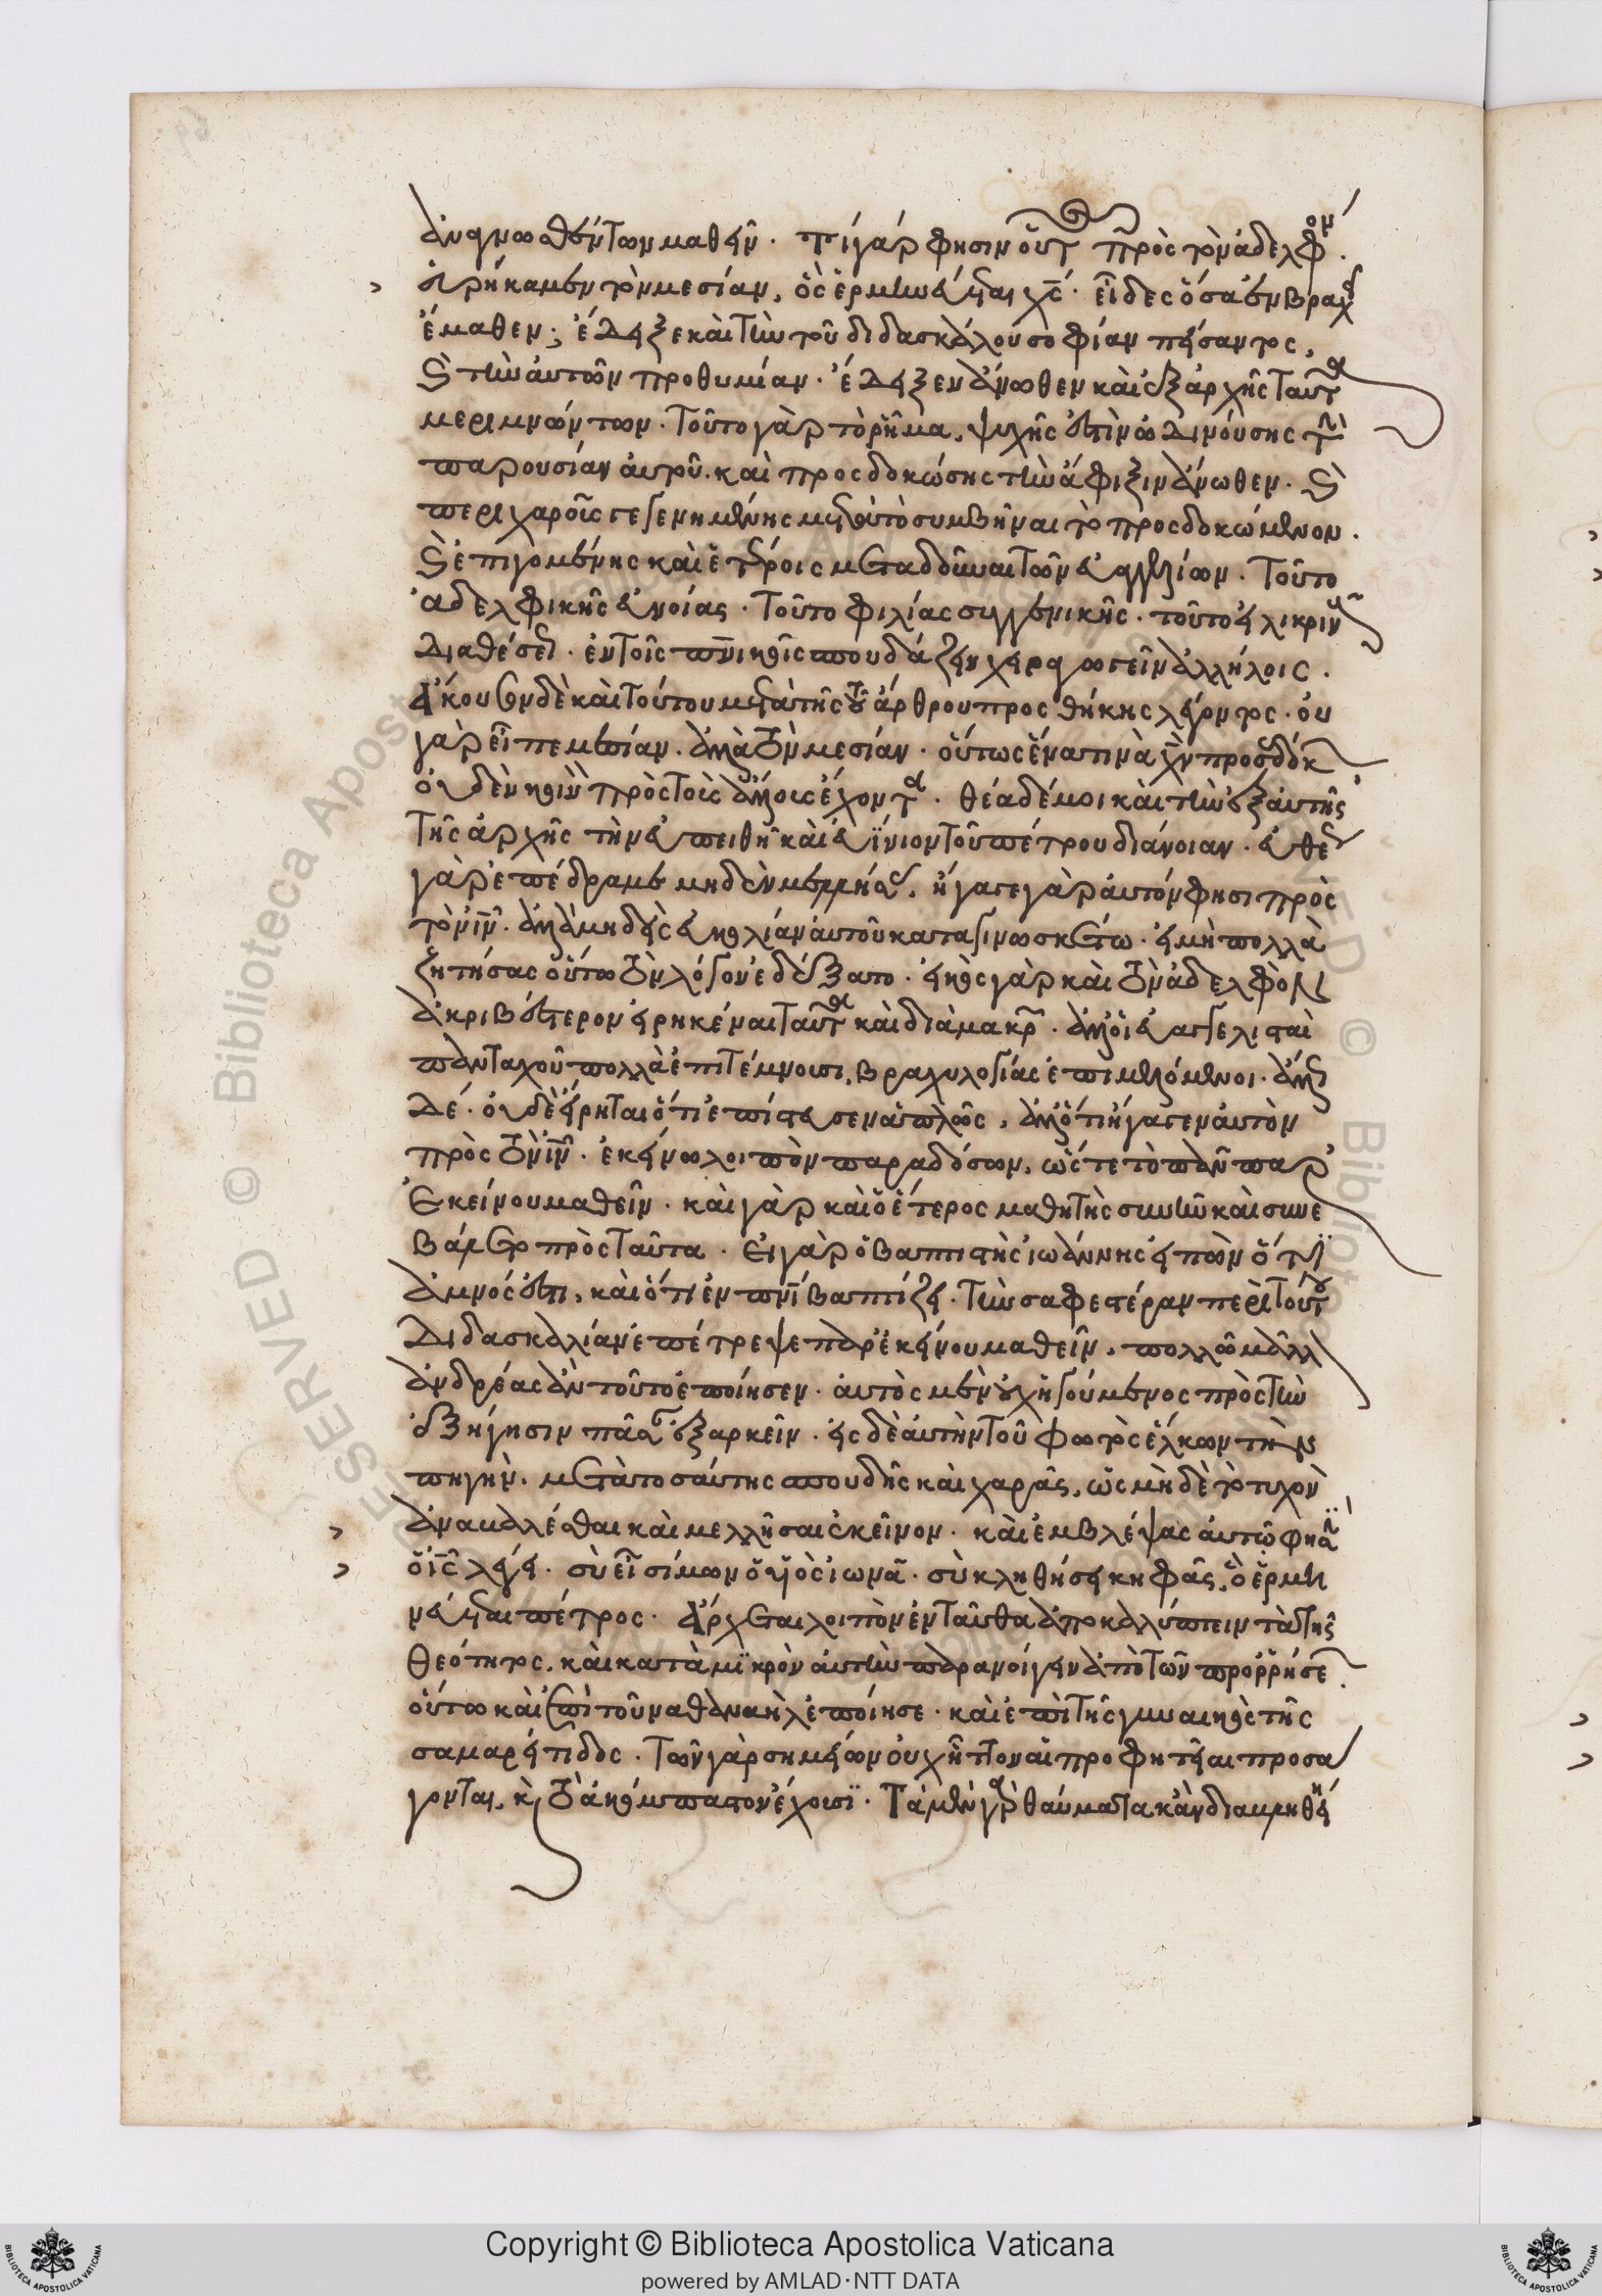 ἀναγνωσθέντων μαθεῖν. τί γάρ φησιν οὗτ πρὸς τὸν ἀδελφόν.
εὑρήκαμεν τὸν μεσίαν, ὅ ἐστιν ἑρμηνευόμενον χς. εἶδες ὅσα ἐν βραχεῖ
ἔμαθεν; ἔδειξε καὶ τὴν τοῦ διδασκάλου σοφίαν πείσαντος,
καὶ τὴν αὐτῶν προθυμίαν. ἔδειξεν ἄνωθεν καὶ ἐξ ἀρχῆς ταῦτα
μεριμνώντων. τοῦτο γὰρ τὸ ῥῆμα, ψυχῆς ἐστὶν ὠδινούσης τὴν
παρουσίαν αὐτοῦ. καὶ προσδοκώσης τὴν ἄφιξιν ἄνωθεν. καὶ
περιχαροῦς γεγενημένης μετὰ τὸ συμβῆναι τὸ προσδοκώμενον.
καὶ ἐπιγομένης καὶ ἑτέροις μεταδοῦναι τῶν εὐαγγελίων. τοῦτο
ἀδελφικῆς εὐνοίας. τοῦτο φιλίας συγγενικῆς. τοῦτο εἰλικριν
διαθέσεως. ἐν τοῖς πνικοῖς σπουδάζειν χειραγωγεῖν ἀλλήλοις.
Ἄκουε δὲ καὶ τούτου μετὰ τῆς τοῦ ἄρθρου προσθήκης λέγοντος. οὐ
γὰρ εἶπε μεσίαν. ἀλλὰ τὸν μεσίαν. οὕτως ἕνα τινὰ χν προσεδόκ
οὐδὲν κοινὸν πρὸς τοὺς ἄλλους ἔχοντα. θέα δέ μοι καὶ τὴν ἐξ αὐτῆς
τῆς ἀρχῆς τὴν εὐπειθῆ καὶ εὐήνιον τοῦ πέτρου διάνοιαν. εὐθέως
γὰρ ἐπέδραμε μηδὲν μελλήσας. ἤγαγε γὰρ αὐτόν φησι πρὸς
τὸν ιν. ἀλλὰ μηδεὶς εὐκολίαν αὐτοῦ καταγινωσκέτω. εἰ μὴ πολλὰ
ζητήσας οὕτω τὸν λόγον ἐδέξατο. εἰκὸς γὰρ καὶ τὸν ἀδελφὸν
ἀκριβέστερον εἰρηκέναι ταῦτα καὶ διὰ μακρῶν. ἀλλ οἱ εὐαγγελισταὶ
πανταχοῦ πολλὰ ἐπιτέμνουσι, βραχυλογίας ἐπιμελόμενοι. ἄλλως
δέ. οὐδὲ εἴρηται ὅτι ἐπίστευσεν ἁπλῶς, ἀλλ ὅτι ἤγαγεν αὐτὸν
πρὸς τὸν ιν. ἐκείνω λοιπὸν παραδώσων, ὥστε τὸ πᾶν παρ
ἐκείνου μαθεῖν. καὶ γὰρ καὶ ὁ ἕτερος μαθητὴς συνῆν καὶ συνε
βάλετο πρὸς ταῦτα. Εἰ γὰρ ὁ βαπτιστὴς ἰωάννης εἰπὼν ὅτι
ἀμνός ἐστι, καὶ ὅτι ἐν πνι βαπτίζει. τὴν σαφεστέραν περὶ τούτου
διδασκαλίαν ἐπέτρεψε παρ ἐκείνου μαθεῖν, πολλῶ μᾶλλ
ἀνδρέας ἂν τοῦτο ἐποίησεν. αὐτὸς μὲν οὐχ ἡγούμενος πρὸς τὴν
ἐξήγησιν πᾶσαν ἐξαρκεῖν. εἰς δὲ αὐτὴν τοῦ φωτὸς ἕλκων τὴν
πηγὴν. μετὰ τοσαύτης σπουδῆς καὶ χαρᾶς, ὡς μὴ δὲ τὸ τυχὸν
ἀναβαλέσθαι καὶ μελλῆσαι ἐκεῖνον. καὶ ἐμβλέψας αὐτῶ φησιν
ὁ ις λέγει. σὺ εἶ σίμων ὁ υἱὸς ἰωνᾶ. σὺ κληθήσῃ κηφᾶς, ὃ ἑρμη
νεύεται πέτρος. Ἄρχεται λοιπὸν ἐνταῦθα ἀποκαλύπτειν τὰ τῆς
θεότητος, καὶ κατὰ μικρὸν αὐτὴν παρανοίγειν ἀπὸ τῶν προρρήσε
οὕτω καὶ ἐπὶ τοῦ ναθαναὴλ ἐποίησε. καὶ ἐπὶ τῆς γυναικὸς τῆς
σαμαρείτιδος. τῶν γὰρ σημείων οὐχ ἧττον αἱ προφητεῖαι προσά
γονται, καὶ τὸ ἀκόμπαστον ἔχουσι. Τὰ μὲν γὰρ θαύματα κἂν διαμηθῆ